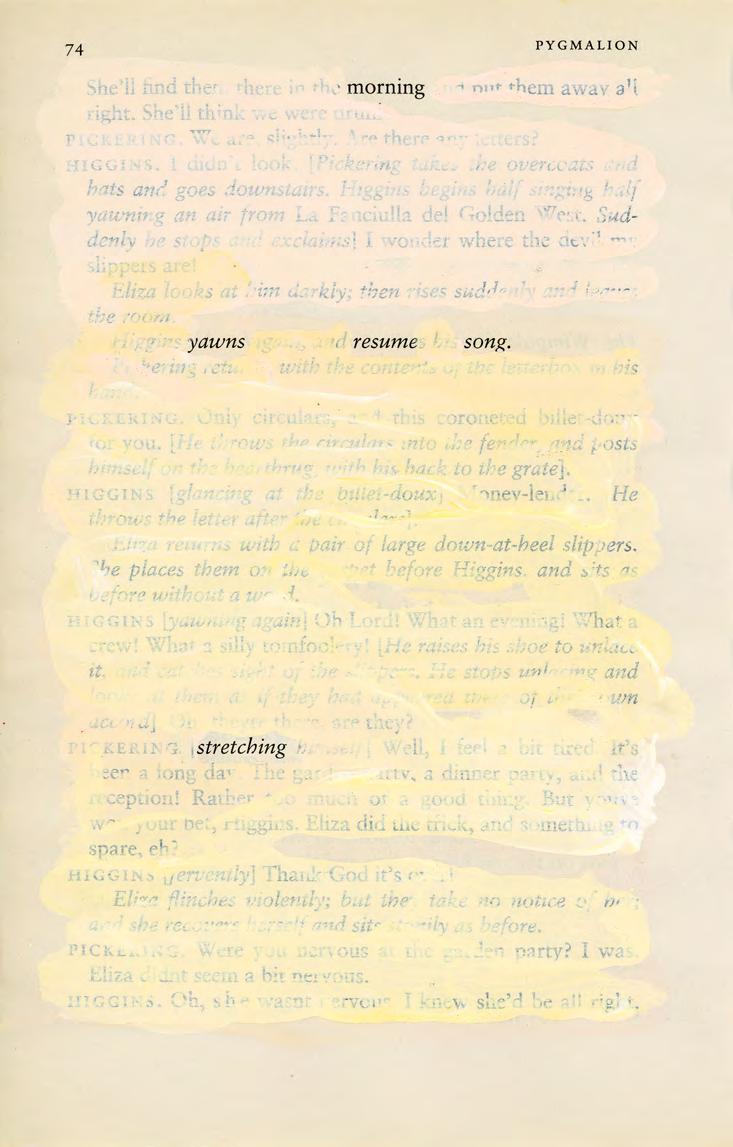 74 PYGMALION
She'll find there in the morning and put them away all
right. She'll think we were
PICKERING. We are, slightly. Are there any letters?
HIGGINS. I didn't look. [Pickering takes the overcoats and
hats and goes downstairs. Higgins begins half singing half
yawning an air from La Fanciulla del Golden West. Sud-
denly he stops and exclaims] I wonder where the devil my
slippers are!
Eliza looks at him darkly; then rises suddenly and leaves
the room.
Higgins yawns again, and resumes his song.
Pickering returns, with the contents of the letterbox in his
hand.
PICKERING. Only circulars, and this coroneted billet-doux
for you. [He throws the circulars into the fender, and posts
himself on the hearthrug, with his back to the grate].
HIGGINS [glancing at the billet-doux] Money-lender. He
throws the letter after the circulars].
Eliza returns with a pair of large down-at-heel slippers.
She places them on the carpet before Higgins, and sits as
before without a word.
HIGGINS [yawning again] Oh Lord! What an evening! What a
crew! What a silly tomfoolery! [He raises his shoe to unlace
it, and catches sight of the slippers. He stops unlacing and
looks at them as if they had appeared there of their own
accord] Oh theyre there, are they?
PICKERING [stretching himself] Well, I feel a bit tired. It's
been a long day. The garden party, a dinner party, and the
reception! Rather too much of a good thing. But youve
won your bet, Higgins. Eliza did the trick, and something to
spare, eh?
HIGGINS [fervently] Thank God it's over!
Eliza flinches violently; but they take no notice of her;
and she recovers herself and sits stonily as before.
PICKERING. Were you nervous at the garden party? I was.
Eliza didnt seem a bit nervous.
HIGGINS. Oh, she wasnt nervous. I knew she'd be all right.